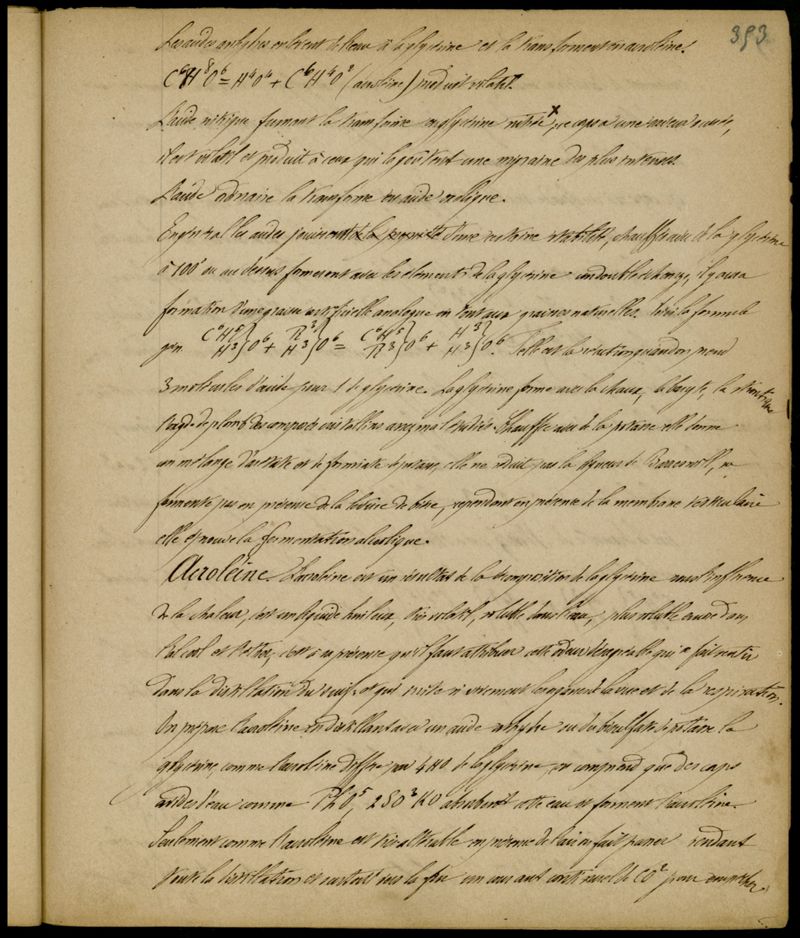 393
Les acides anhydres enlèvent de l'eau à la glycérine et la transforment en acroléine.
C⁶H⁸O⁶ = H⁴O⁴ + C⁶H⁴O² (acroléine) produit volatil.
L'acide nitrique fumant la transforme en glycérine nitrée x, ce corps a une saveur sucrée,
il est volatil et produit à ceux qui le goûtent une migraine des plus intenses.
L'acide ordinaire la transforme en acide oxalique.
En général les acides jouissant d'une certaine stabilité, chauffés avec de la glycérine
à 100° ou au dessus formeront avec les éléments de la glycérine un double échange, il y aura
formation d'une graisse artificielle analogue en tout aux graisses naturelles. la formule
C⁶H⁵ H³ } O⁶ + R³ H³ } O⁶ = C⁶H⁵ R³ } O⁶ + H³ H³ } O⁶. Telle est la réaction quand on prend
3 molécules d'acide pour 1 de glycérine. La glycérine forme avec la chaux, la baryte, la strontiane
l'oxyde de plomb des composés cristallins assez mal étudiés. Chauffée avec de la potasse elle donne
un mélange d'acétate et de formiate de potasse, elle ne réduit pas la liqueur de Barreswill, ne
fermente pas en présence de la levure de bière, cependant en présence de la membrane testiculaire
elle éprouve la fermentation alcoolique.
Acroléine L'acroléine est un résultat de la décomposition de la glycérine sous l'influence
de la chaleur, c'est un liquide huileux, très volatil, soluble dans l'eau, plus soluble encore dans
l'alcool et l'éther, c'est à sa présence qu'il faut attribuer cette odeur désagréable qui se fait sentir
dans la distillation du suif et qui irrite si vivement les organes de la vue et de la respiration.
On prépare l'acroléine en distillant avec un acide anhydre ou du bisulfate de potasse la
glycérine, comme l'acroléine diffère par 4HO de la glycérine, on comprend que des corps
avides d'eau comme PhO⁵, 2SO³KO absorbent cette eau et forment l'acroléine.
Seulement comme l'acroléine est très altérable en présence de l'air on fait passer pendant
toute la distillation et surtout vers la fin un courant continuel de CO² pour empêcher